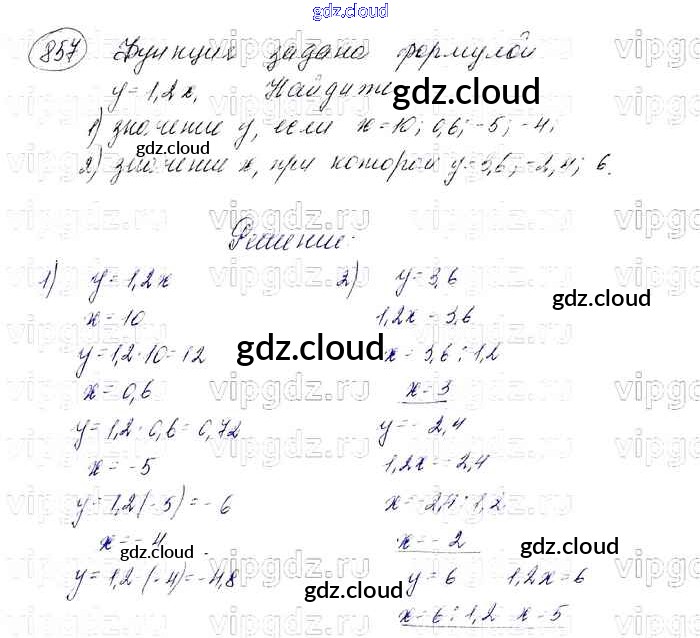 gdz.cloud
857 Функция задана формулой
y=1,2x. Найдите
gdz.cloud
1) значение y, если x=10; 0,6; -5; -4;
gdz.cloud
2) значение x, при котором y=3,6; -2,4; 6.
Решение.
1) y=1,2x 2) y=3,6
gdz.cloud
x=10 1,2x=3,6
y=1,2·10=12 x=3,6:1,2
gdz.cloud
x=0,6 x=3
y=1,2·0,6=0,72 y=-2,4
x=-5 1,2x=-2,4
y=1,2(-5)=-6 x=-2,4:1,2
x=-4 x=-2
gdz.cloud gdz.cloud
y=1,2(-4)=-4,8 y=6 1,2x=6
gdz.cloud
x=6:1,2 x=5
vipgdz.ru